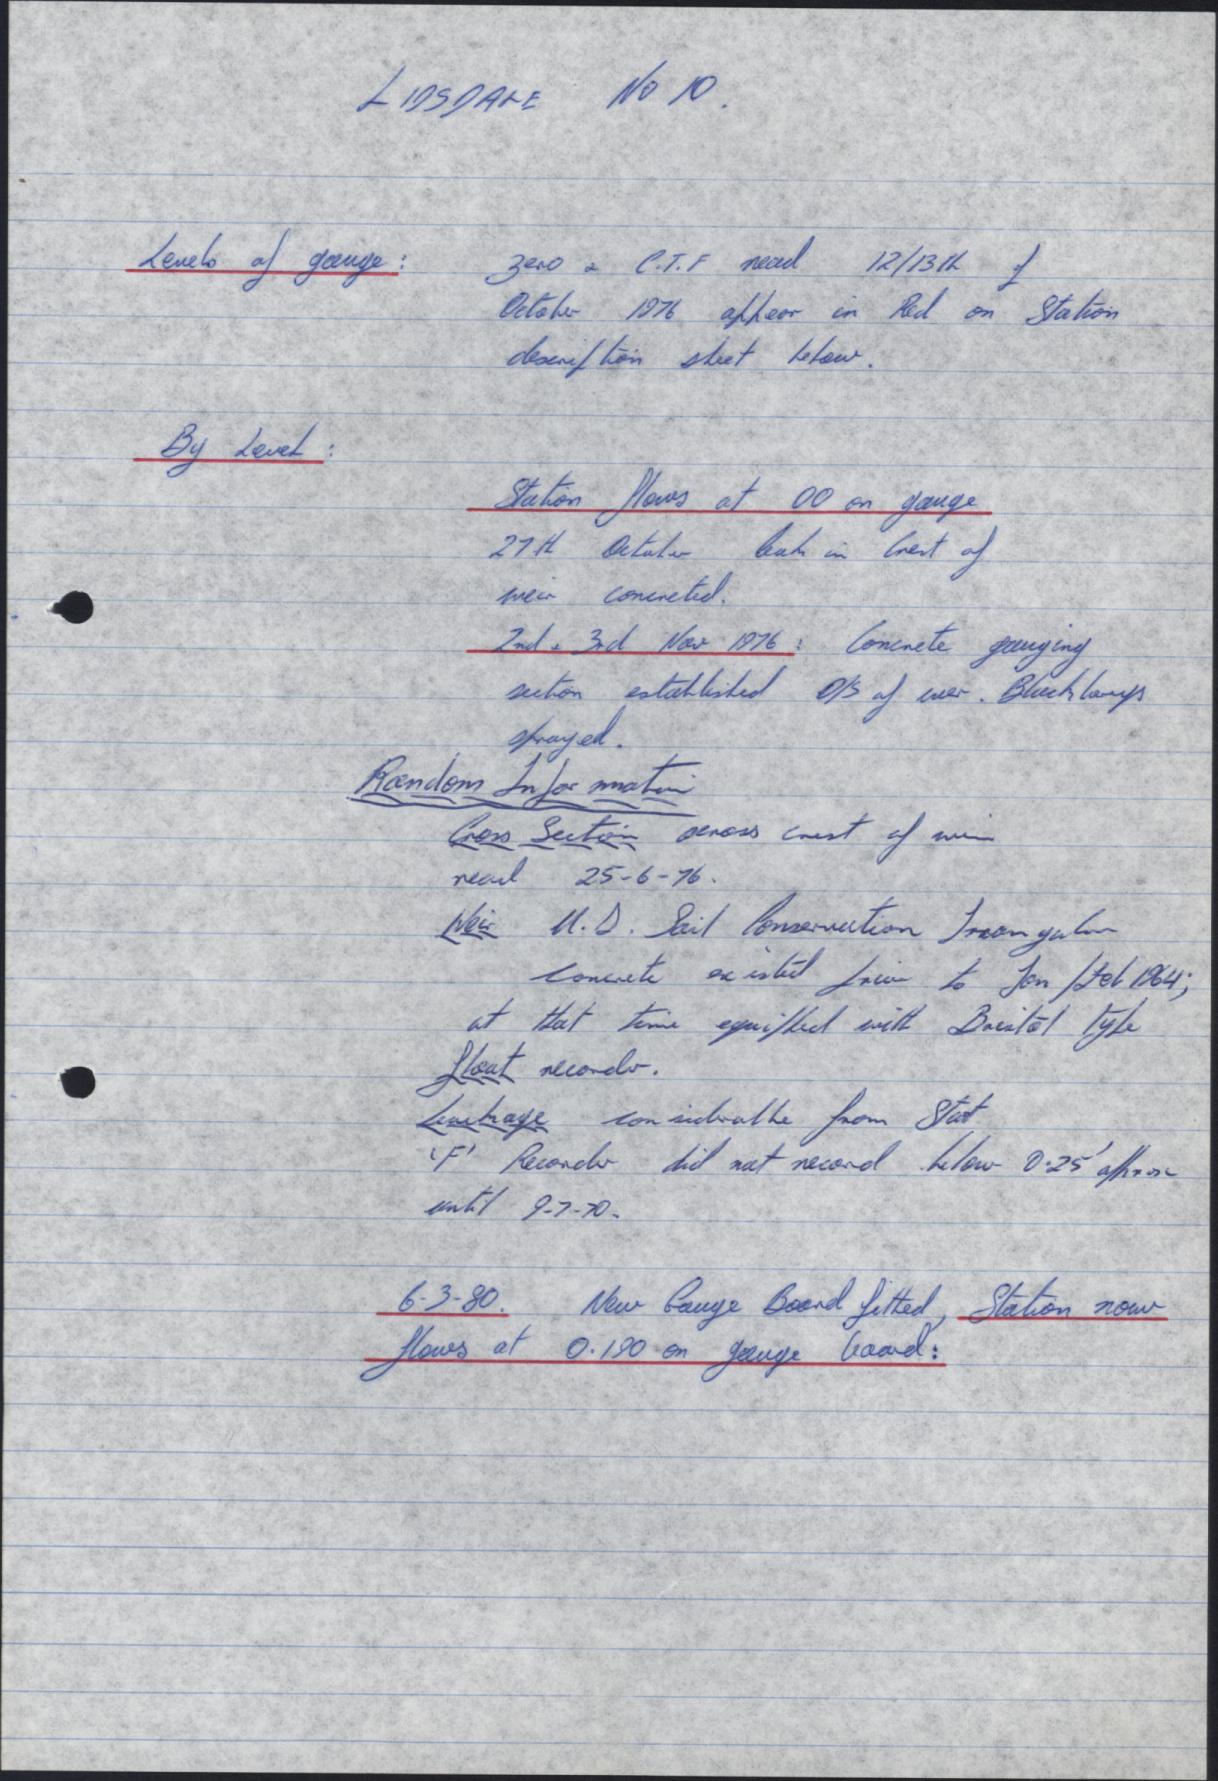 LIDSDALE No 10.
Levels of gauge: Zero & C.T.F read 12/13th of
October 1976 appear in Red on Station
description sheet below.
By Level:
Station flows at 00 on gauge
27th October leak in Crest of
weir concreted.
2nd & 3rd Nov 1976: Concrete gauging
section established D/S of weir. Blackberrys
sprayed.
Random Information
Cross Section across crest of weir
read 25-6-76.
Weir U.S. Soil Conservation Triangular
concrete existed prior to Jan/Feb 1964;
at that time equipped with Bristol type
float recorder.
Leakage considerable from Start
'F' Recorder did not record below 0.25' approx
until 9-7-70.
6-3-80. New Gauge Board fitted, Station now
flows at 0.190 on gauge board: